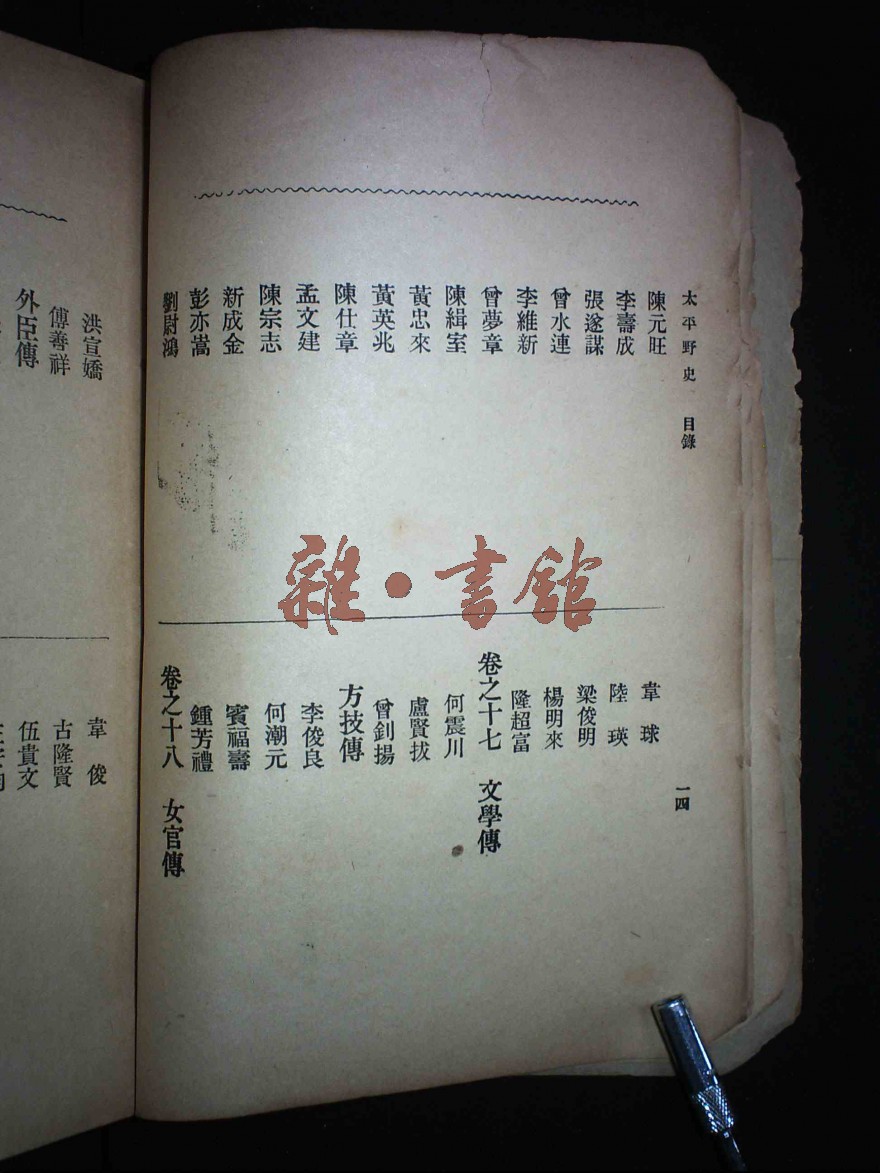 太平野史 目錄
一四
陳元旺
李壽成
張遂謀
曾水連
李維新
曾夢章
陳緝室
黃忠來
黃英兆
陳仕章
孟文建
陳宗志
新成金
彭亦嵩
劉尉鴻
韋球
陸瑛
梁俊明
楊明來
隆超富
卷之十七 文學傳
何震川
盧賢拔
曾釗揚
方技傳
李俊良
何潮元
賓福壽
鍾芳禮
卷之十八 女官傳
洪宣嬌
傅善祥
外臣傳
韋俊
古隆賢
伍貴文
雜·書館